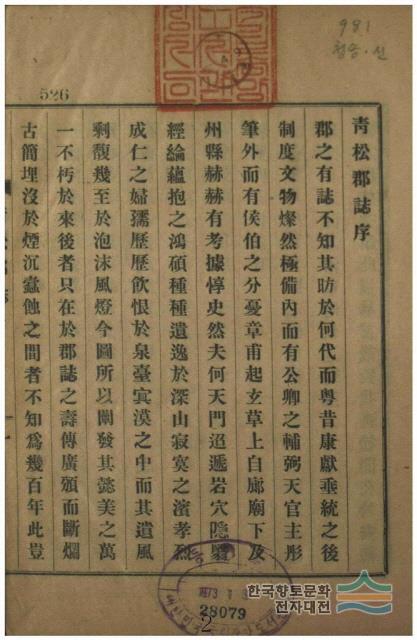 981
청송·신
526
靑松郡誌序
郡之有誌不知其昉於何代而粤昔康獻垂統之後
制度文物燦然極備內而有公卿之輔弼天官主彤
筆外而有侯伯之分憂章甫起玄草上自廊廟下及
州縣赫赫有考據惇史然夫何天門迢遞岩穴隱翳
經綸蘊抱之鴻碩種種遺逸於深山寂寞之濱孝烈
成仁之婦孺歷歷飮恨於泉臺寞漠之中而其遺風
剩馥幾至於泡沫風燈今圖所以闡發其懿美之萬
一不朽於來後者只在於郡誌之壽傳廣頒而斷爛
古簡埋沒於煙沉蠹蝕之間者不知爲幾百年此豈
1973
28079
2
한국향토문화
전자대전